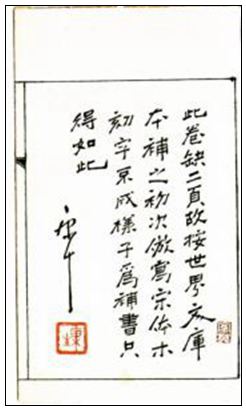 此卷缺二頁故按世界文庫
本補之初次倣寫宋体木
刻字未成樣子爲補書只
得如此